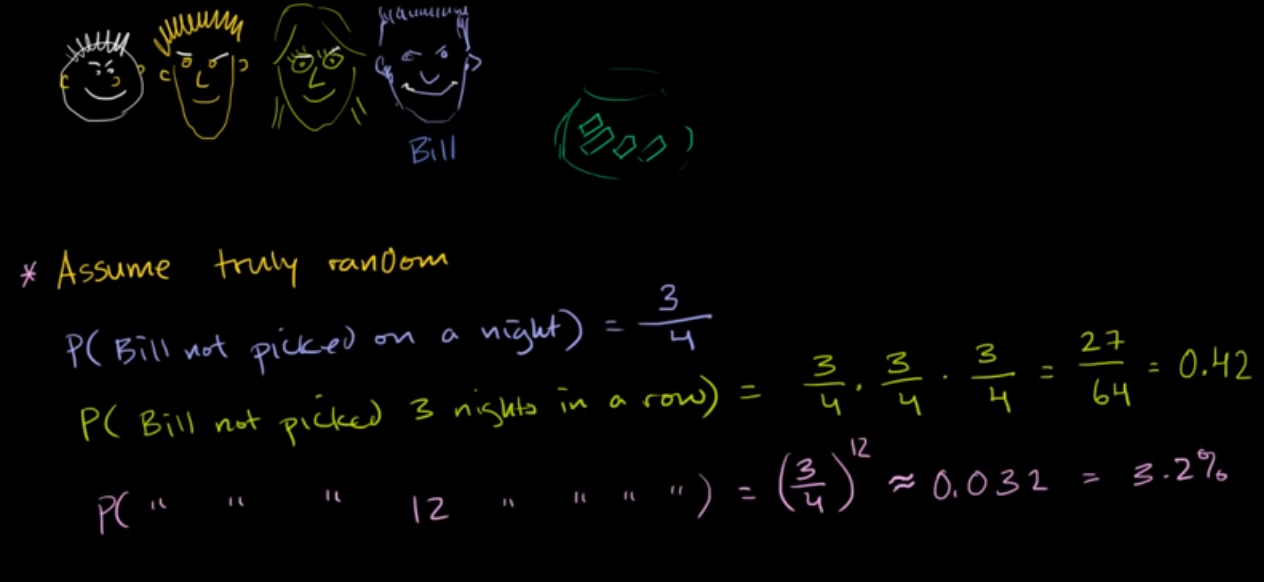 Bill
* Assume truly random
P(Bill not picked on a night) = 3/4
P(Bill not picked 3 nights in a row) = 3/4 · 3/4 · 3/4 = 27/64 = 0.42
P(" " " 12 " " " ") = (3/4)^12 ≈ 0.032 = 3.2%